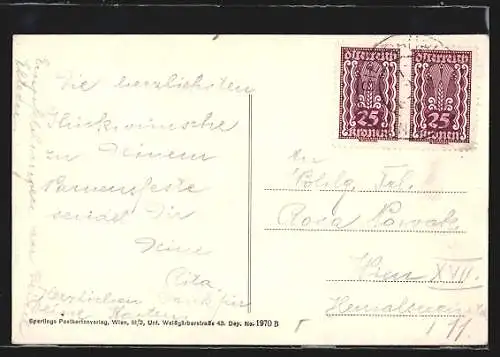 Die herzlichsten
Glückwünsche
zu Deinem
Namensfeste
sendet Dir
Deine
Rita.
Herzlichen Dank für
Deine Karten
Sperlings Postkartenverlag, Wien, III/2, Unt. Weißgärberstraße 43. Dep. No. 1970 B
ÖSTERREICH
25
KRONEN
ÖSTERREICH
25
KRONEN
An
Frl.
Rosa Nowak
Wien XVII.
11.